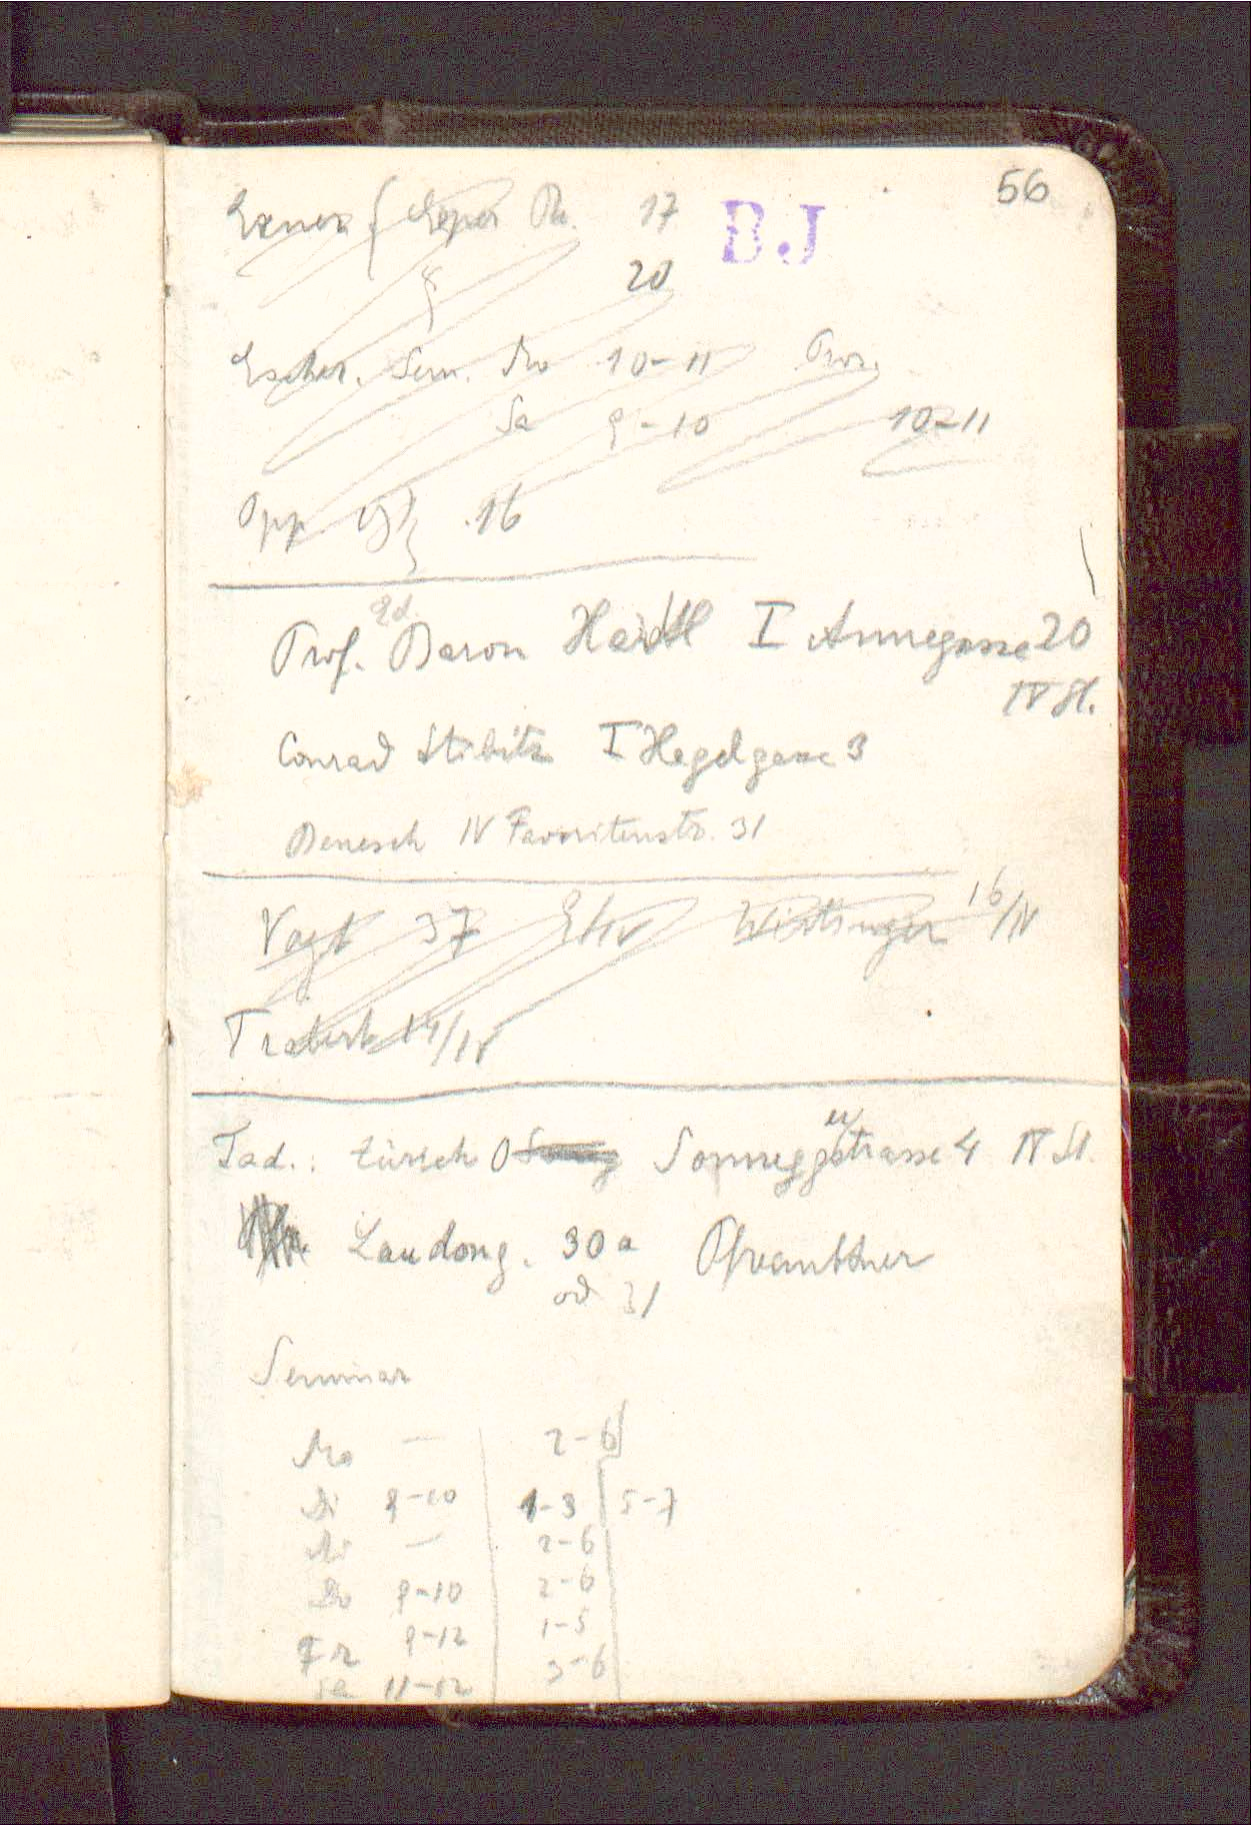 56
Exner { Exper Ph. 17
BJ
20
Escher. Sem. Do 10-11 Pros.
Sa 9-10 10-11
Opp. 16
Prof. Baron Haerdtl I Annagasse 20
Ed.
IV St.
Conrad Stibitz I Hegelgasse 3
Benesch IV Favoritenstr. 31
Vogt 37 9/IV Wirtinger 16/IV
Trabert 14/IV
Tad.: Zürich Sonneggstrasse 4 IV St.
Laudong. 30a
od 31
Seminar
Mo — 2-6
Di 9-10 1-3 5-7
Mi — 2-6
Do 9-10 2-6
Fr 9-12 1-5
Sa 11-12 3-6